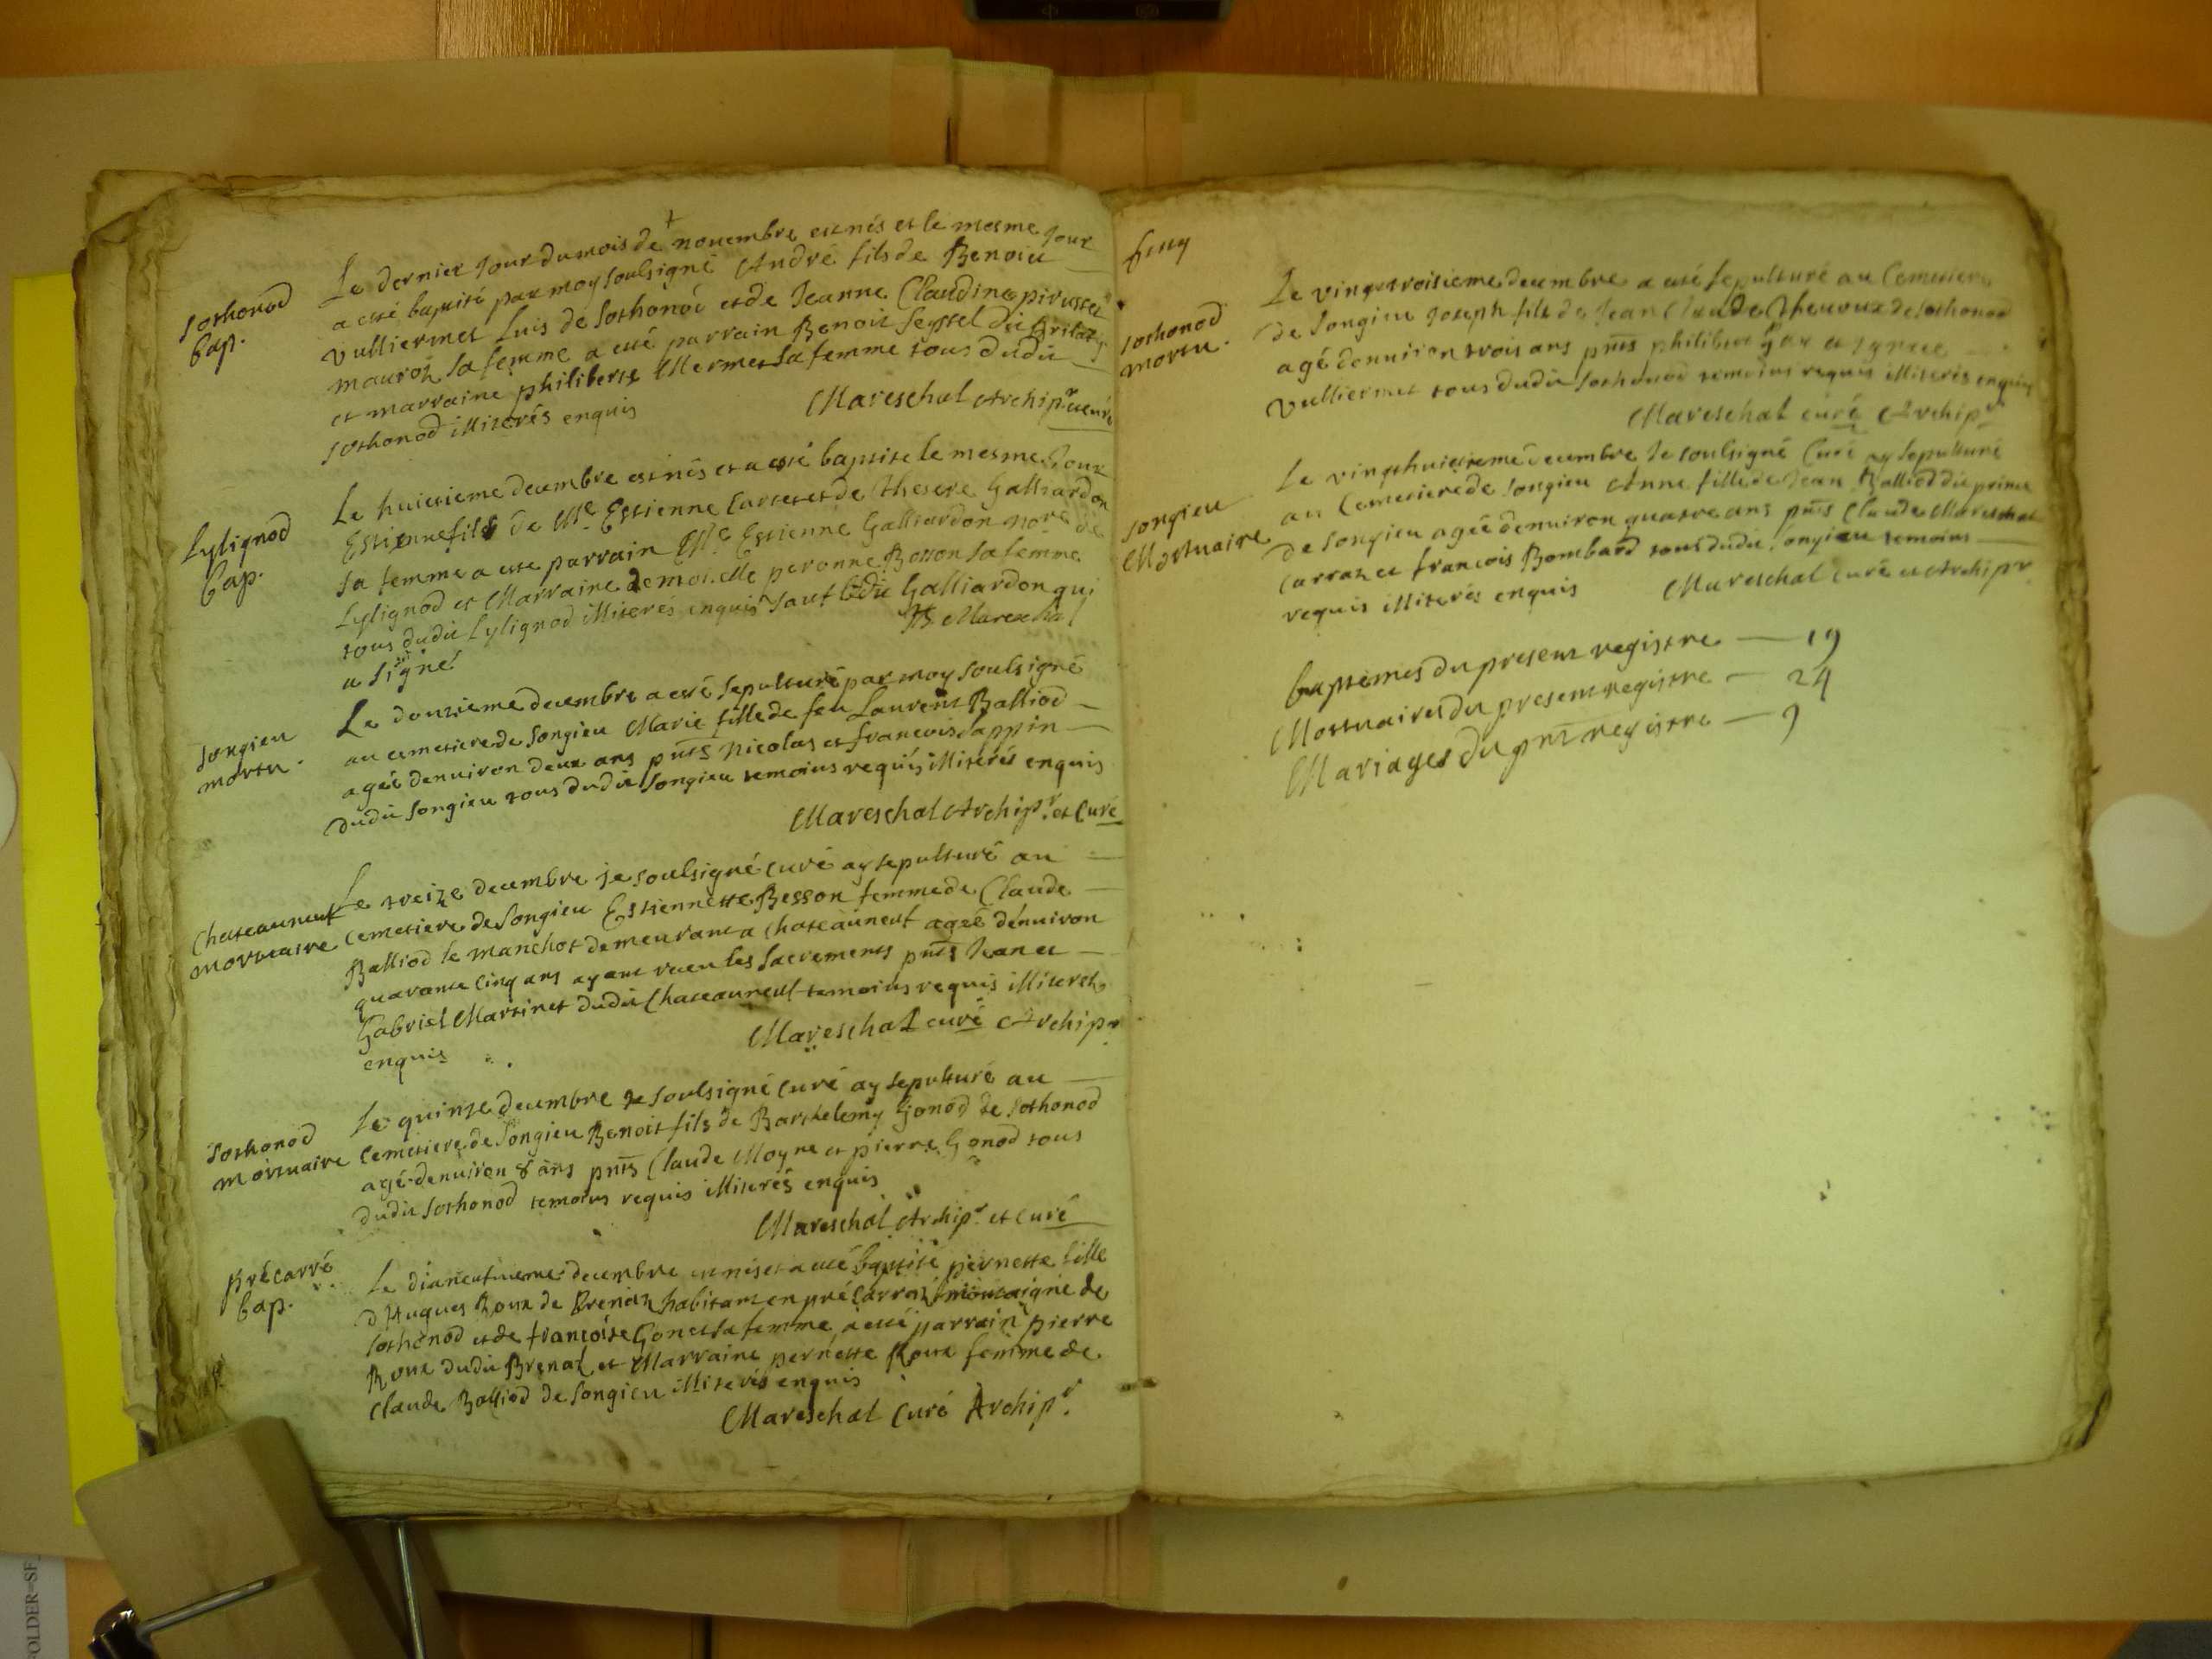 Sothonod
bap.
Le dernier jour du mois de novembre est nés et le mesme jour
a esté baptisé par moy soulsigné André fils de Benoit
Vulliermet Luis de Sothonod et de Jeanne Claudine
sa femme a esté parrain Benoit Seyssel dit
et marraine philiberte Mermet sa femme tous dudit
Sothonod illiterés enquis
Mareschal Archipr et curé
Lylignod
bap.
Le huictieme decembre est nés et a esté baptisé le mesme jour
Estienne fils de Mre Estienne Carteret de Therese Galliardon
sa femme a este parrain Mre Estienne Galliardon nore de
Lylignod et Marraine demoiselle peronne Besson sa femme
tous dudit Lylignod illiterés enquis sauf ledit Galliardon qui
a signé
Mareschal
Songieu
mortu.
Le douzieme decembre a esté sepulturé par moy soulsigné
au cemetiere de Songieu Marie fille de feu Laurent Balliod
agée denuiron deux ans pnts Nicolas et francois Sappin
dudit Songieu tous dudit Songieu temoins requis illiterés enquis
Mareschal Archipr. et Curé
Chateauneuf
mortuaire
Le treize decembre je soulsigné curé ay sepulturé au
Cemetiere de Songieu Estiennette Besson femme de Claude
Balliod le manchot demeurant a Chateauneuf agée dénuiron
quarante cinq ans ayant receu les Sacrements pnts Jean et
Gabriel Martinet dudit Chateauneuf temoins requis illiterés
enquis
Mareschal curé Archipr
Sothonod
mortuaire
Le quinze decembre Je soulsigné curé ay sepulturé au
Cemetiere de Songieu Benoit fils de Barthelemy Gonod de Sothonod
agé denuiron 8 ans pnts Claude Moyne et pierre Gonod tous
dudit Sothonod temoins requis illiterés enquis
Mareschal Archipr. et Curé
Précarré
bap.
Le dixneufuieme decembre est nés et a esté baptisé pernette fille
d'Hugues Roux de Brenaz habitant en pré Carraz montaigne de
Sothonod et de françoise Gonet sa femme a esté parrain pierre
Roux dudit Brenaz et Marraine pernette Roux femme de
Claude Balliod de Songieu illiterés enquis
Mareschal Curé Archipr.
Sothonod
mortu.
Le vingt troisieme decembre a esté sepulturé au Cemetiere
de Songieu Joseph fils de Jean Claude Thevoux de Sothonod
agé denuiron trois ans pnts philibert Gay et
Vulliermet tous dudit Sothonod temoins requis illiterés enquis
Mareschal curé Archipr
Songieu
Mortuaire
Le vingt huictieme decembre Je soulsigné Curé ay sepulturé
au Cemetiere de Songieu Anne fille de Jean Balliod dit prince
de Songieu agée denuiron quatre ans pnts Claude Mareschal
Carraz et francois Bombard tous dudit Songieu temoins
requis illiterés enquis
Mareschal curé et Archipr
baptemes du present registre — 19
Mortuaires du present registre — 24
Mariages du pnt registre — 9